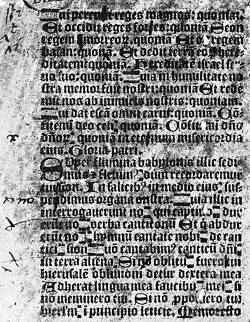 Qui percussit reges magnos: quoniā
Et occidit reges fortes: quoniā Seon
regem amorreorū: quoniā Et og regem
basan: quoniā Et dedit terrā eorū here
ditatem: quoniā Hereditatē israel ser
uo suo: quoniā Quia in humilitate no
stra memor fuit nostri: quoniam Et rede
mit nos ab inimicis nostris: quoniam
Qui dat escā omni carni: quoniā Cō
fitemini deo celi: quoniā Cōfitemini dño
dñorū: quoniā in eternum misericordia
eius. Gloria patri
Super flumina babylonis illic sedi
mus et fleuimus: dum recordaremur
tui sion. In salicibus in medio eius: sus
pendimus organa nostra. Quia illic in
terrogauerunt nos: qui captiuos duxe
runt nos: verba cantionum Et qui ab
duxerunt nos: hymnum cantate nobis de can
ticis sion Quomodo cantabimus canticū dñi:
in terra aliena Si oblitus fuero tui
hierusalē: obliuioni detur dextera mea
Adhereat lingua mea faucibus meis: si
nō meminero tui. Si nō proposuero tui
hierlm: in principio letitie. Memor esto